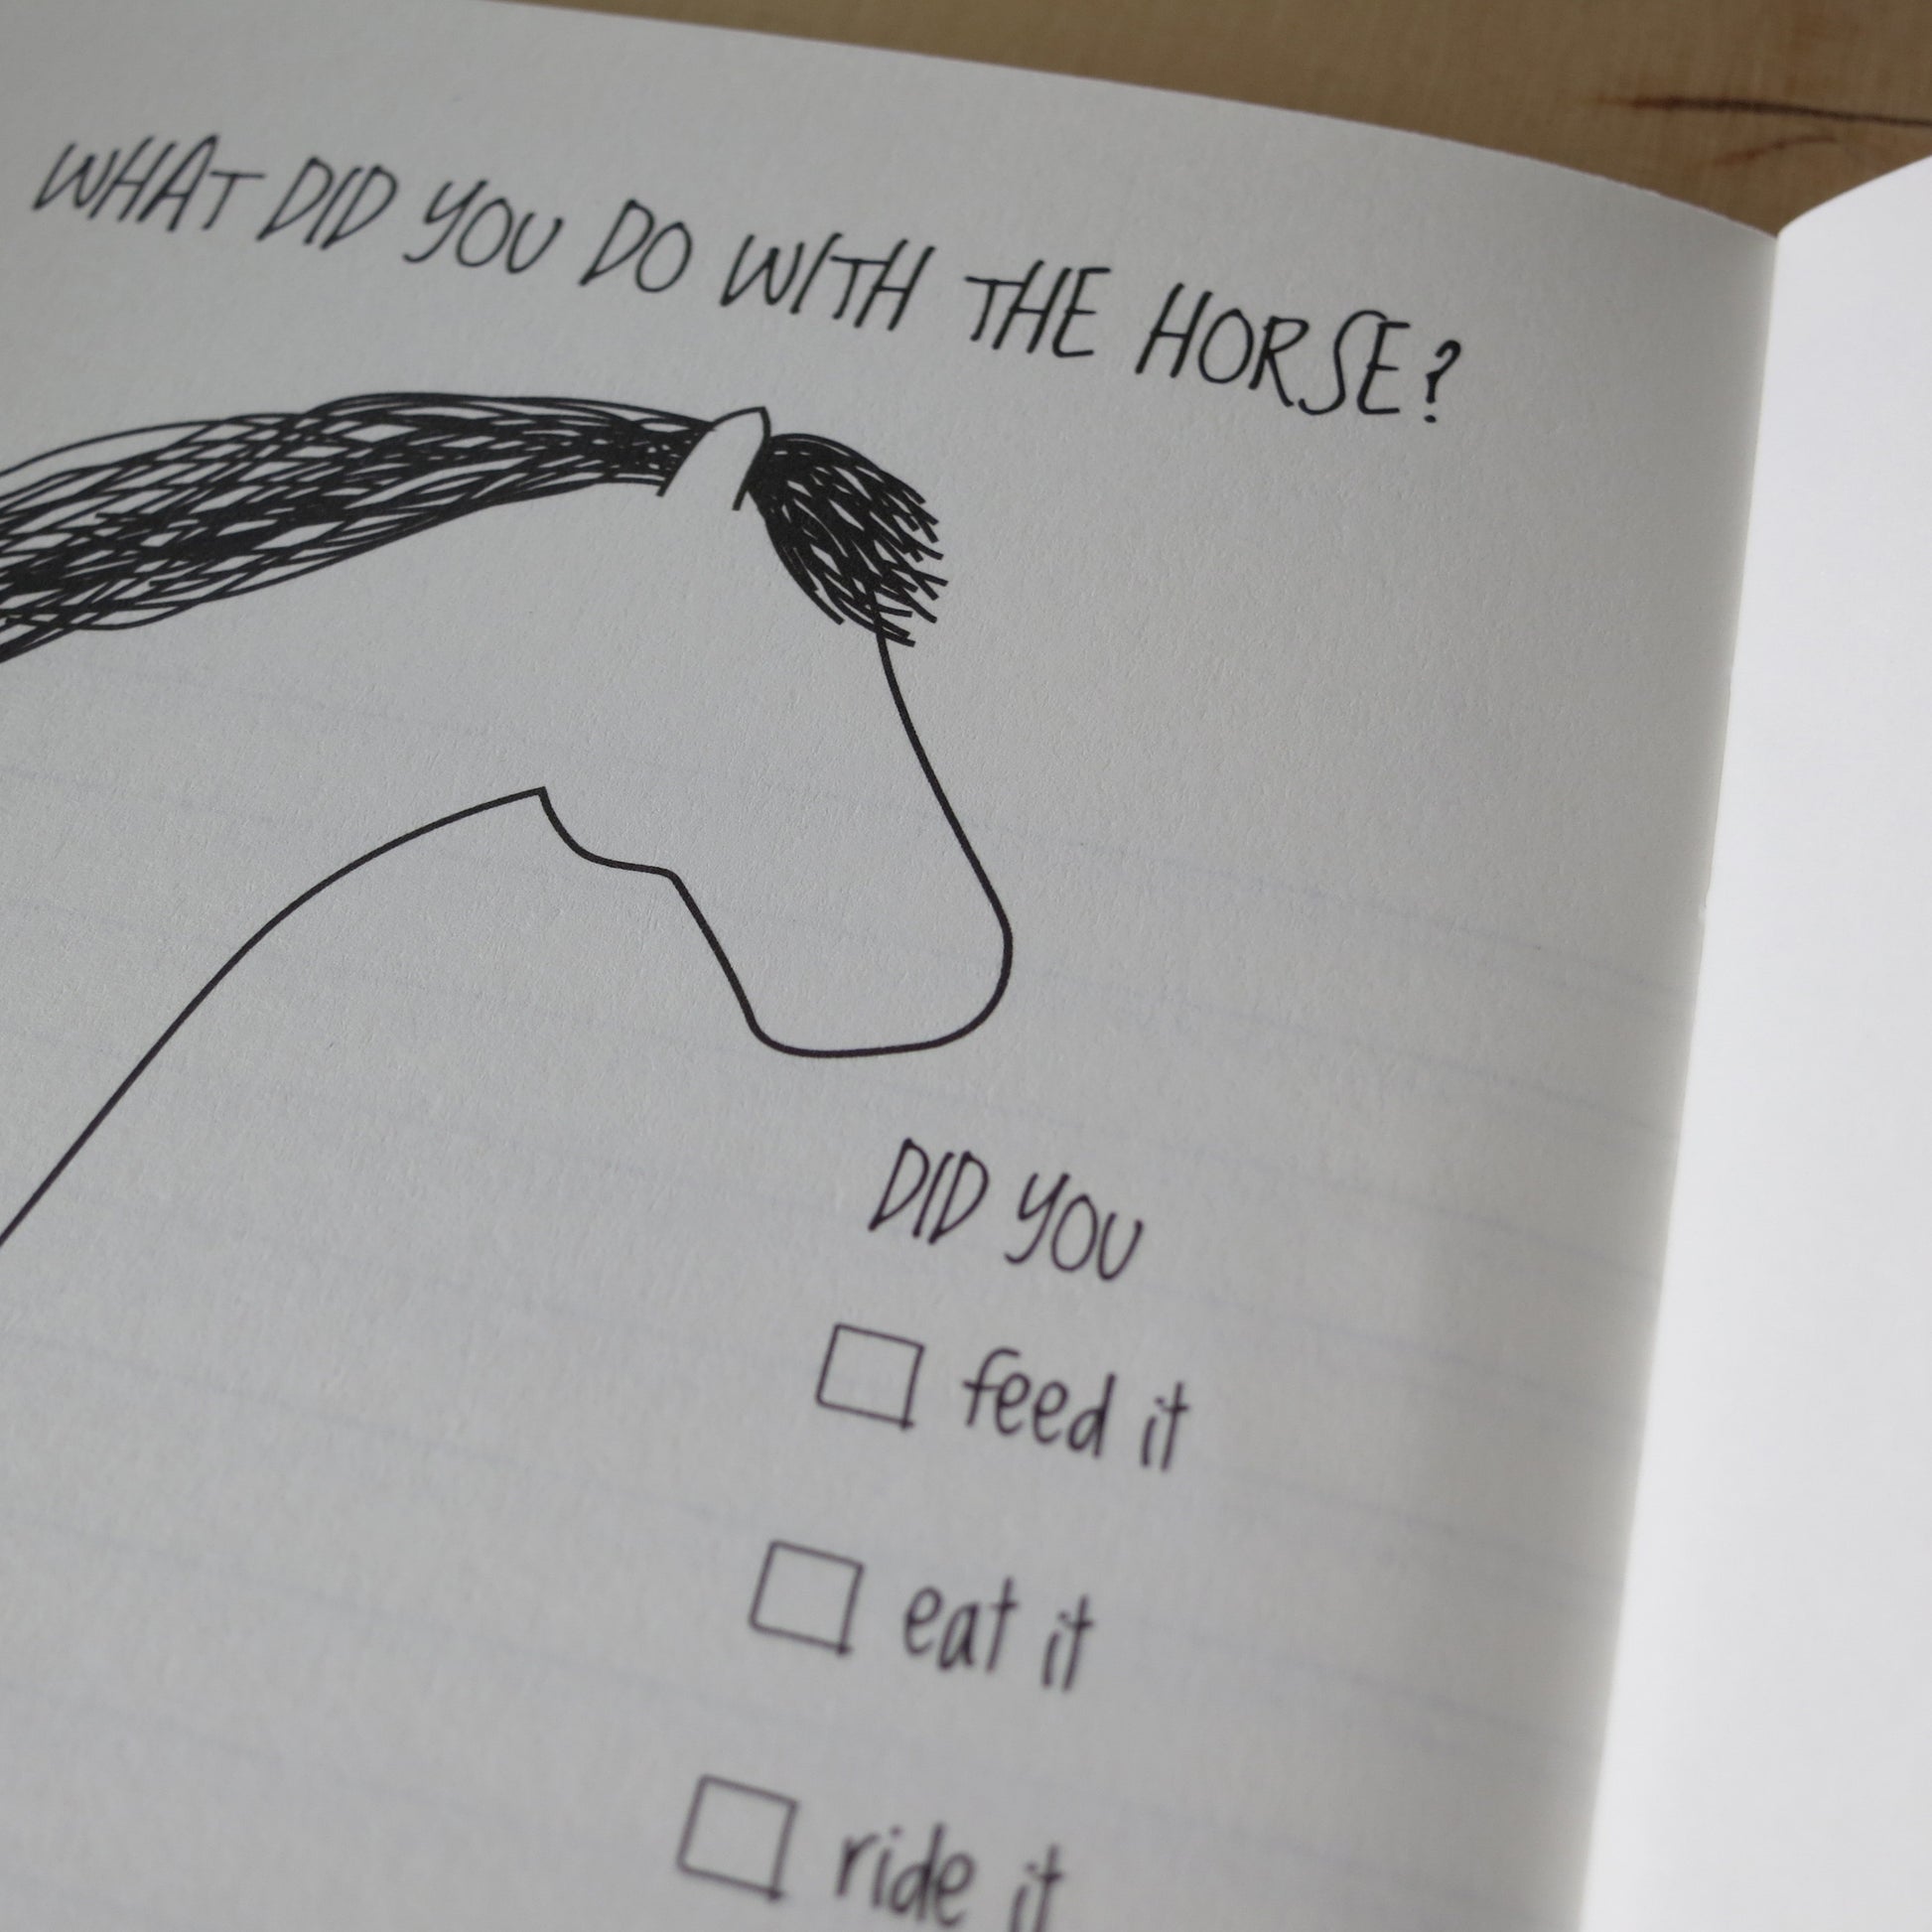 WHAT DID YOU DO WITH THE HORSE?
DID YOU
feed it
eat it
ride it